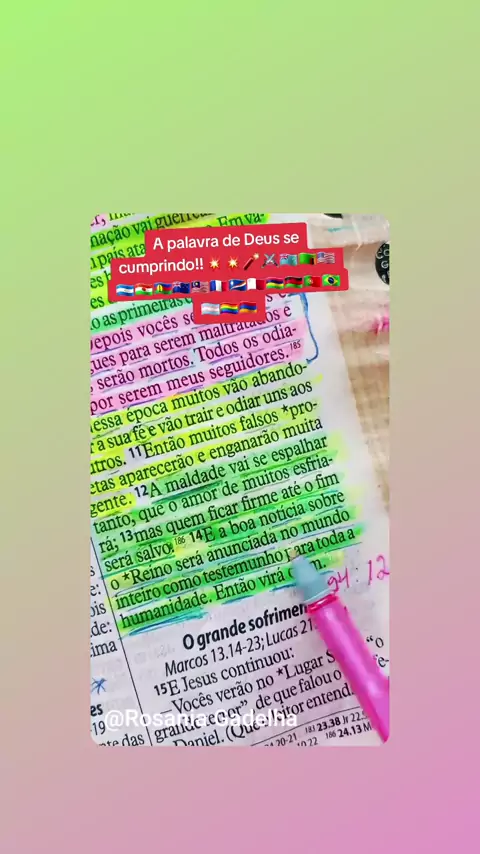 A palavra de Deus se
cumprindo!!
nação vai guerrear
Em vá-
país
o as primeiras
depois vocês
ques para serem maltratados e
serão mortos. Todos os odia-
por serem meus seguidores.185
essa época muitos vão abando-
r a sua fé e vão trair e odiar uns aos
utros. 11Então muitos falsos *pro-
etas aparecerão e enganarão muita
gente. 12A maldade vai se espalhar
tanto, que o amor de muitos esfria-
rá; 13mas quem ficar firme até o fim
será salvo.186 14E a boa notícia sobre
o *Reino será anunciada no mundo
inteiro como testemunho para toda a
humanidade. Então virá o fim.
24:12
O grande sofrimen
Marcos 13.14-23; Lucas 21.
15E Jesus continuou:
Vocês verão no *Lugar S
"o
grande
de que falou o
Daniel. (Qu
itor entend
@Rosania Gadelha
183 23.38
186 24.13